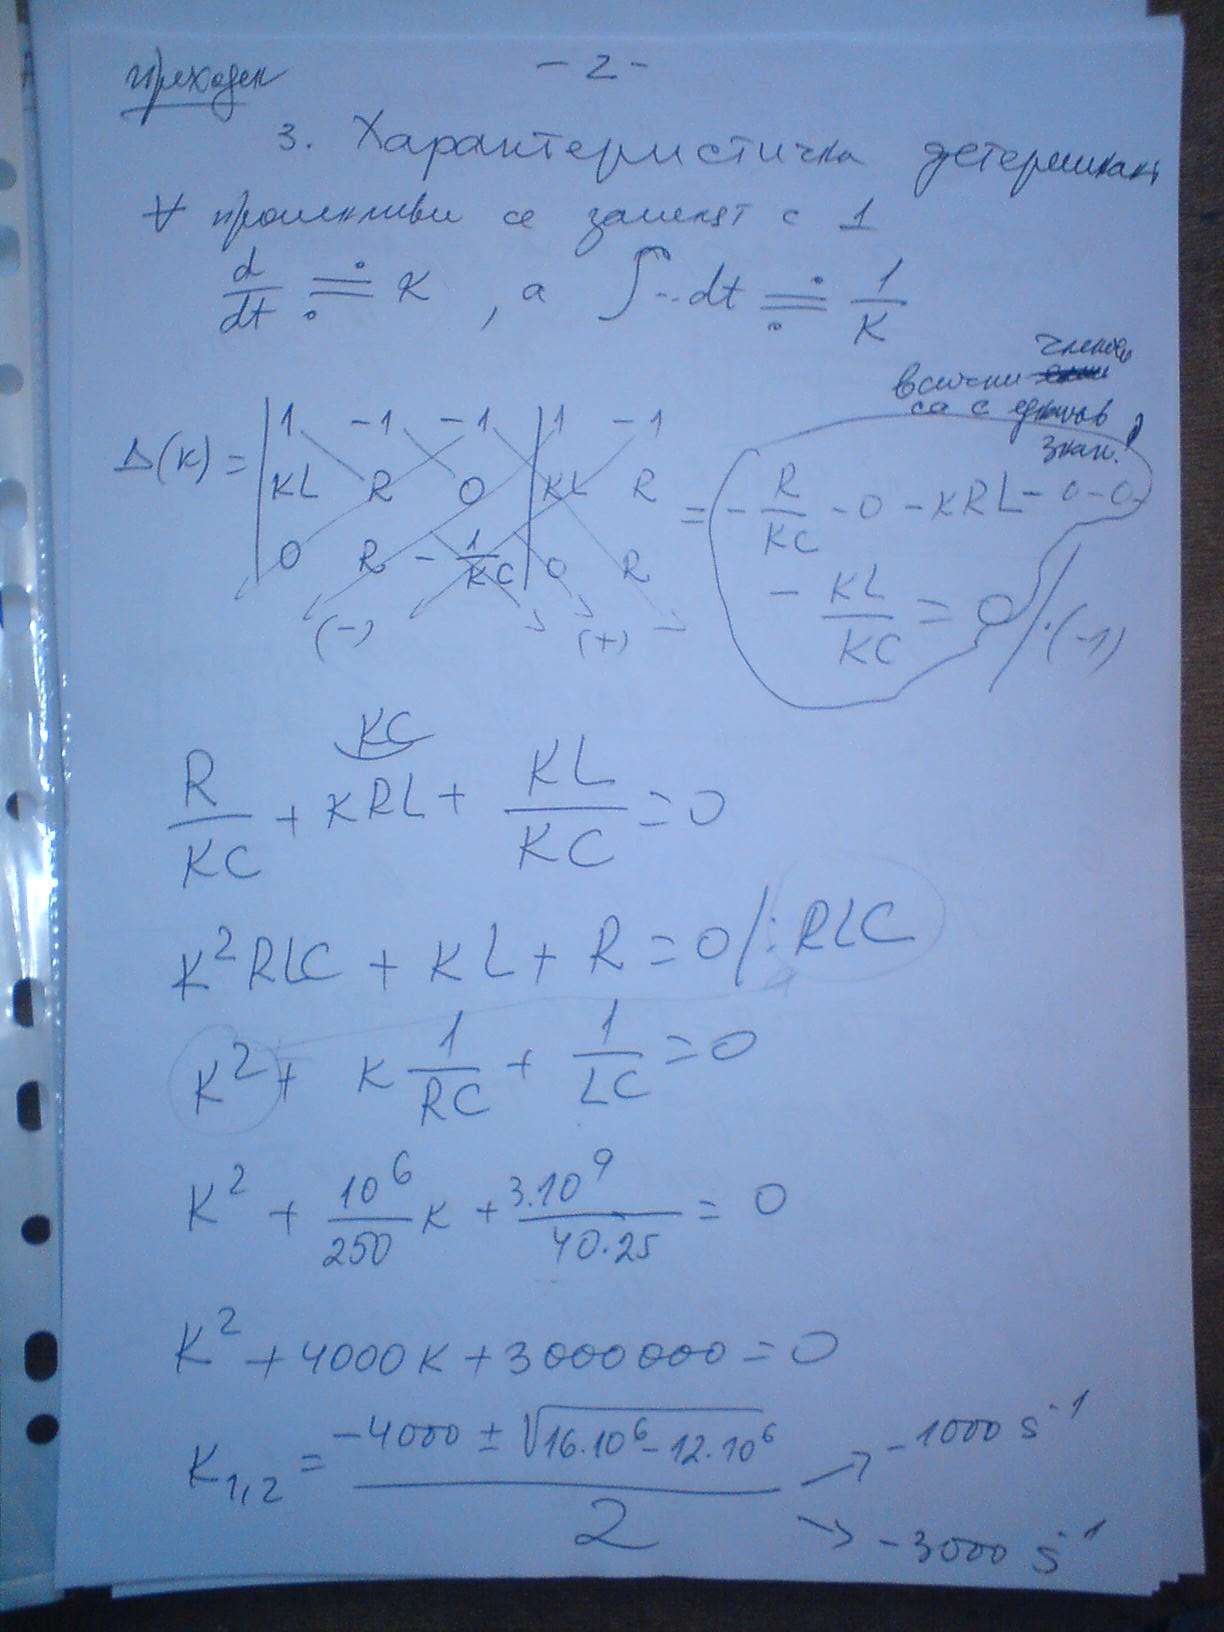 преходен
- 2 -
3. Характеристична детерминант
∀ променливи се заменят с 1
d/dt ≓ K , а ∫...dt ≓ 1/K
всички членове
са с еднакъв
знак!
Δ(K) = | 1 -1 -1 | 1 -1
KL R 0 | KL R
0 R -1/KC | 0 R
(-) (+)
= -R/KC - 0 - KRL - 0 - 0 -
- KL/KC = 0 / ·(-1)
KC
R/KC + KRL + KL/KC = 0
K² RLC + KL + R = 0 / : RLC
K² + K 1/RC + 1/LC = 0
K² + 10⁶/250 K + 3.10⁹/40.25 = 0
K² + 4000K + 3000000 = 0
K₁,₂ = (-4000 ± √(16.10⁶ - 12.10⁶))/2 → -1000 s⁻¹
→ -3000 s⁻¹